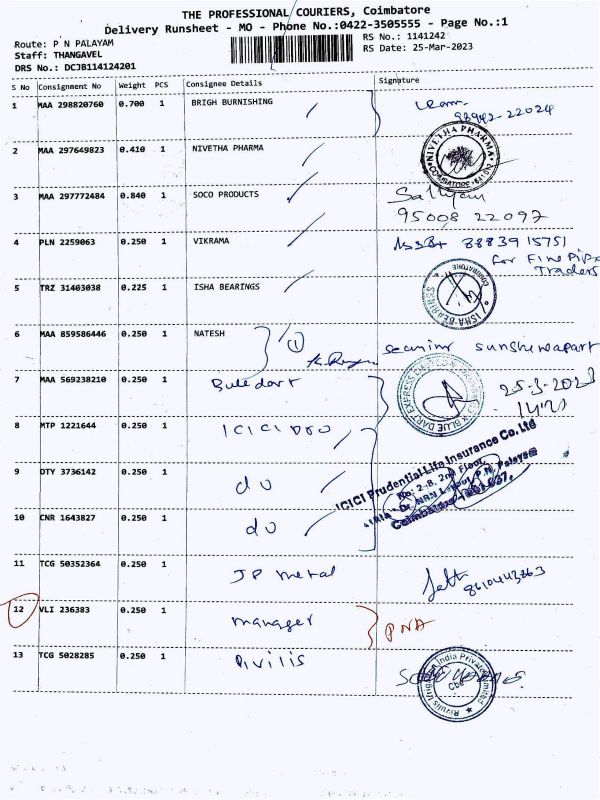 THE PROFESSIONAL COURIERS, Coimbatore
Delivery Runsheet - MO - Phone No.:0422-3505555 - Page No.:1
Route: P N PALAYAM
Staff: THANGAVEL
DRS No.: DCJB114124201
RS No.: 1141242
RS Date: 25-Mar-2023
S No Consignment No Weight PCS Consignee Details Signature
1 MAA 298820760 0.700 1 BRIGH BURNISHING
98942-22024
2 MAA 297649823 0.410 1 NIVETHA PHARMA
NIVETHA PHARMA
COIMBATORE
3 MAA 297772484 0.840 1 SOCO PRODUCTS
95008 22097
4 PLN 2259063 0.250 1 VIKRAMA
38839 15751
for Fine Pipe
Traders
5 TRZ 31403038 0.225 1 ISHA BEARINGS
ISHA BEARINGS
COIMBATORE
6 MAA 859586446 0.250 1 NATESH
1
7 MAA 569238210 0.250 1 Bluedart
BLUE DART EXPRESS
25-3-2023
8 MTP 1221644 0.250 1 ICICI pro
ICICI Prudential Life Insurance Co. Ltd
9 DTY 3736142 0.250 1 do
No: 2-B, 2nd Floor,
P.N. Palayam
10 CNR 1643827 0.250 1 do
Coimbatore
11 TCG 50352364 0.250 1 JP metal
8610443863
12 VLI 236383 0.250 1 manager
PNA
13 TCG 5028285 0.250 1 Rivilis
India Private Limited